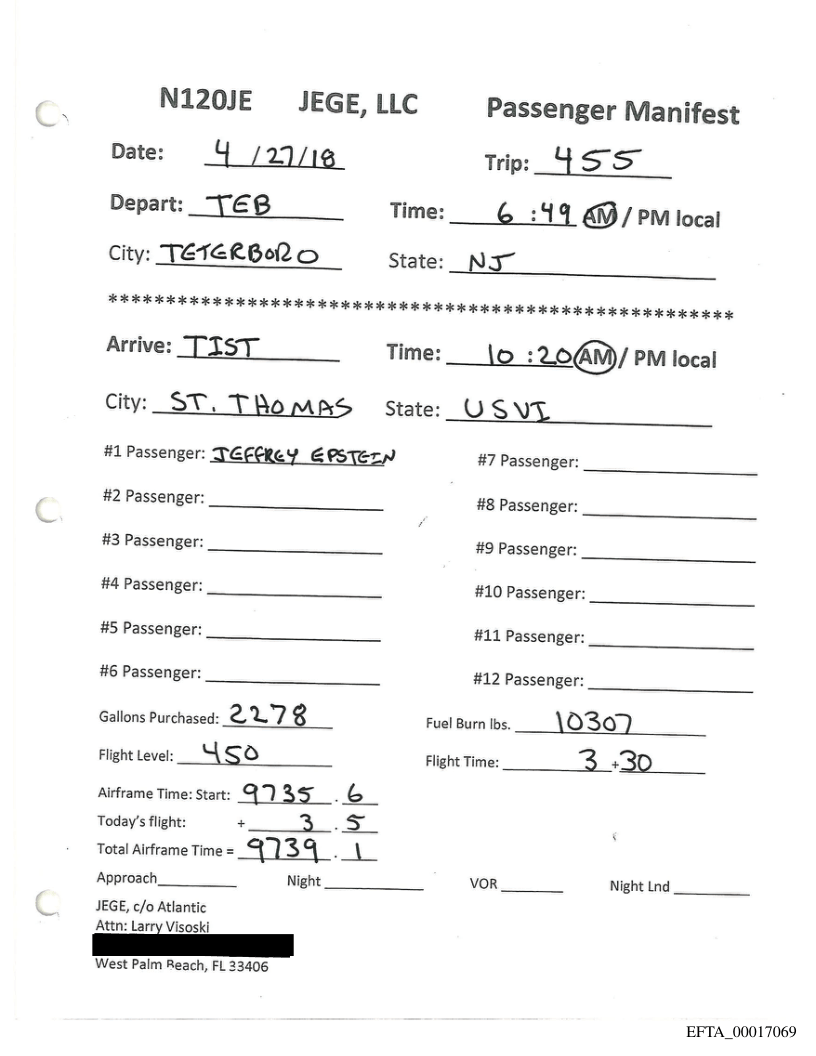 N120JE JEGE, LLC Passenger Manifest
Date: 4 /27/18 Trip: 455
Depart: TEB Time: 6 :49 AM / PM local
City: TETERBORO State: NJ
******************************************************
Arrive: TIST Time: 10 :20 AM / PM local
City: ST. THOMAS State: USVI
#1 Passenger: JEFFREY EPSTEIN #7 Passenger:
#2 Passenger: #8 Passenger:
#3 Passenger: #9 Passenger:
#4 Passenger: #10 Passenger:
#5 Passenger: #11 Passenger:
#6 Passenger: #12 Passenger:
Gallons Purchased: 2278 Fuel Burn lbs. 10307
Flight Level: 450 Flight Time: 3 +30
Airframe Time: Start: 9735 . 6
Today's flight: + 3 . 5
Total Airframe Time = 9739 . 1
Approach Night VOR Night Lnd
JEGE, c/o Atlantic
Attn: Larry Visoski
West Palm Beach, FL 33406
EFTA_00017069